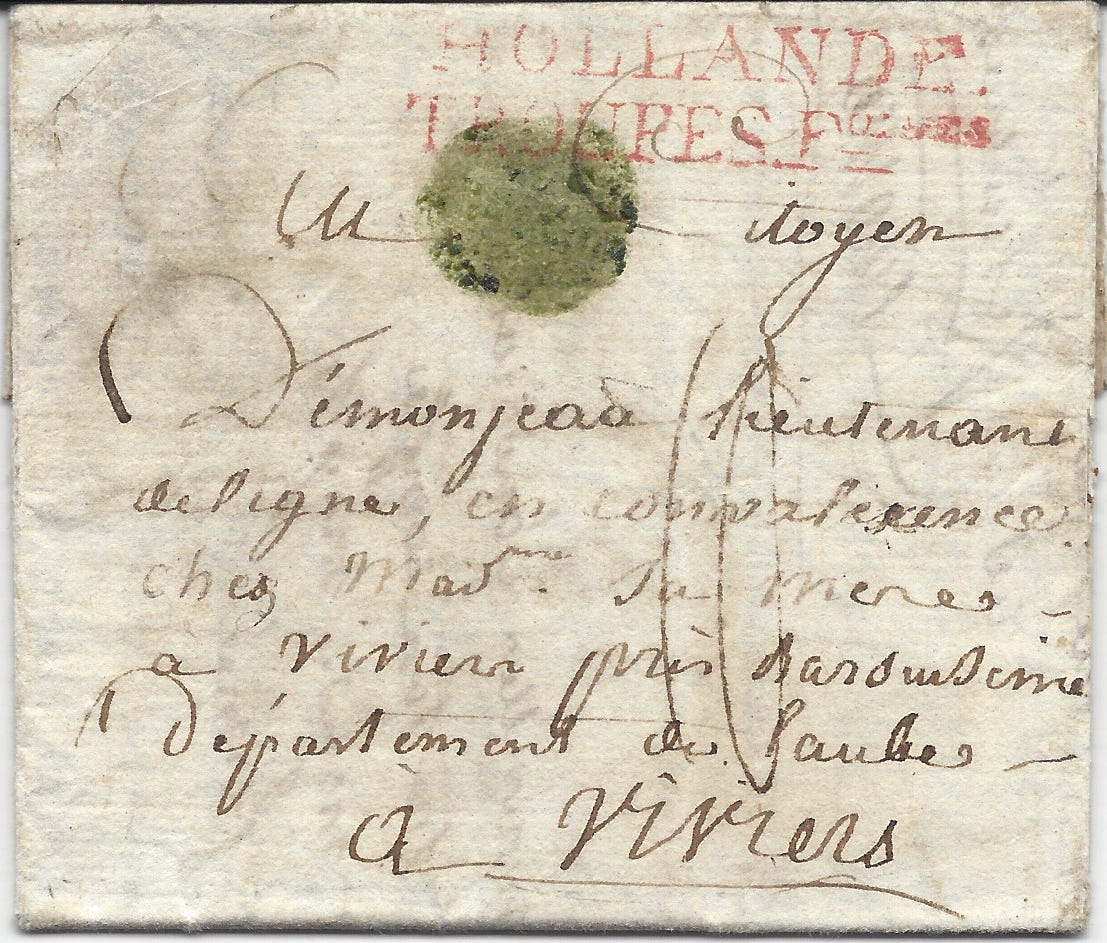 HOLLANDE.
TROUPES. F.
Au Citoyen
Démonjeau lieutenant
de ligne, en convalesence
chez Mad.me Sa mere
a Vivier près Barsurseine
Département de laube
à Viviers